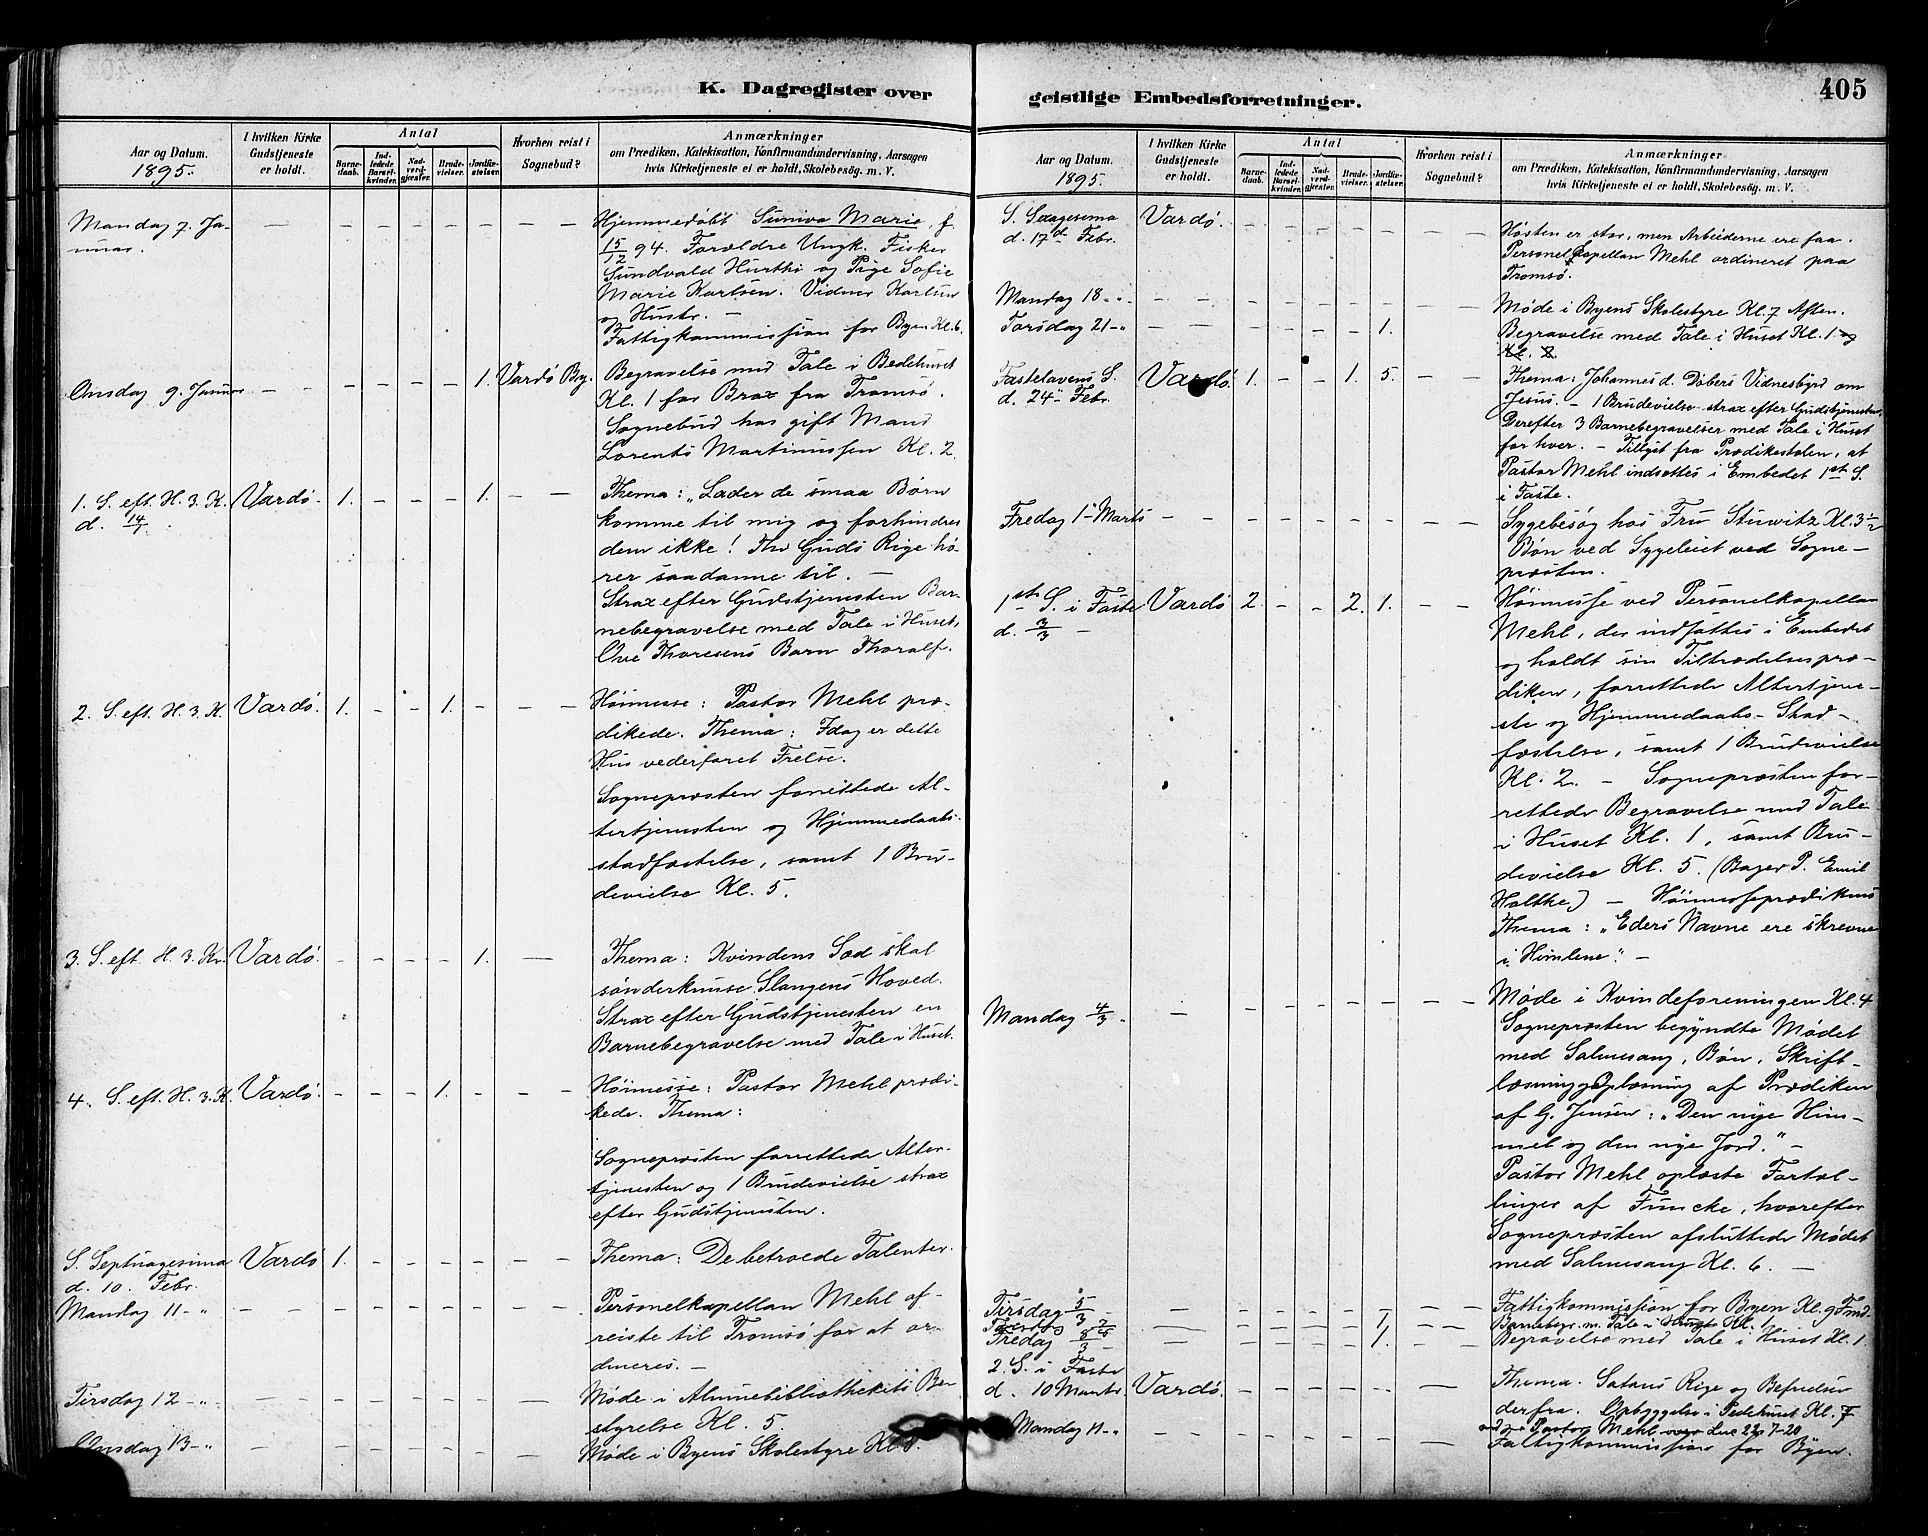 K. Dagregister over
Aar og Datum.
1895.
I hvilken Kirke
Gudstjeneste
er holdt.
Antal
Barne-
daab.
Ind-
ledede
Barsel-
kvinder.
Nad-
verd-
gjæster.
Brude-
vielser.
Jordfæ-
stelser.
Hvorhen reist i
Sognebud?
Anmærkninger
om Prædiken, Katekisation, Konfirmandundervisning, Aarsagen
hvis Kirketjeneste ei er holdt, Skolebesøg. m. V.
Mandag 7. Ja-
nuar.
Hjemmedøbt Suniva Marie, f.
15/12 94. Forældre Ungk. Fisker
Sundvald Hurthi og Pige Sofie
Marie Karlsen. Vidner Karlsen
og Hustr. –
Fattigkommission for Byen Kl. 6.
Onsdag 9. Januar – – – – – – 1. Vardø By.
Begravelse med Tale i Bedehuset
Kl. 1 for Brox fra Tromsø.
Sognebud hos gift Mand
Lorents Martinussen Kl. 2.
1. S. eft. H. 3. K. Vardø. 1. – – – 1. – –
d. 14/1.
Thema: „Lader de smaa Børn
komme til mig og forhindrer
dem ikke! Thi Guds Rige hø-
rer saadanne til. –
Strax efter Gudstjenesten Bar-
nebegravelse med Tale i Huset,
Ove Thoresens Barn Thoralf.
2. S. eft. H. 3. K. Vardø. 1. – – 1. – – –
Høimesse: Pastor Mehl præ-
dikede. Thema: Idag er dette
Hus vederfaret Frelse.
Sognepresten forrettede Al-
tertjenesten og Hjemmedaabs-
stadfæstelse, samt 1 Bru-
devielse Kl. 5.
3. S. eft. H. 3. K. Vardø. – – – – 1. –
Thema: Kvindens Sæd skal
sønderknuse Slangens Hoved.
Strax efter Gudstjenesten en
Barnebegravelse med Tale i Huset.
4. S. eft. H. 3. K. Vardø. – – – 1. – – –
Høimesse: Pastor Mehl prædi-
kede. Thema:
Sognepresten forrettede Alter-
tjenesten og 1 Brudevielse strax
efter Gudstjenesten.
S. Septuagesima Vardø 1. – – – – – –
d. 10. Febr.
Thema: De betroede Talenter.
Mandag 11 – „
Personelkapellan Mehl af-
reiste til Tromsø for at or-
dineres. –
Tirsdag 12 – „
Møde i Almuebibliothekets Be-
styrelse Kl. 5
Onsdag 13 – „
Møde i Byens Skolestyre Kl.
geistlige Embedsforretninger.
405
Aar og Datum.
1895.
I hvilken Kirke
Gudstjeneste
er holdt.
Antal
Barne-
daab.
Ind-
ledede
Barsel-
kvinder.
Nad-
verd-
gjæster.
Brude-
vielser.
Jordfæ-
stelser.
Hvorhen reist i
Sognebud?
Anmærkninger
om Prædiken, Katekisation, Konfirmandundervisning, Aarsagen
hvis Kirketjeneste ei er holdt, Skolebesøg. m. V.
S. Sexagesima Vardø.
d. 17d Febr.
Høsten er stor, men Arbeiderne ere faa.
Personel Kapellan Mehl ordineret paa
Tromsø.
Mandag 18 – „
Møde i Byens Skolestyre Kl. 7 Aften.
Torsdag 21 – „ – – – – – 1.
Begravelse med Tale i Huset Kl. 1 og
Kl. 2.
Fastelavens S. Vardø. 1. – – 1. 5. – –
d. 24 – Febr.
Thema: Johannes d. Døbers Vidnesbyrd om
Jesus. – 1 Brudevielse strax efter Gudstjenesten.
Derefter 3 Barnebegravelser med Tale i Huset
for hver. – Tillyst fra Prædikestolen, at
Pastor Mehl indsættes i Embedet 1st S.
i Faste.
Fredag 1 – Marts
Sygebesøg hos Fru Stuwitz Kl. 3 1/2
Bøn ved Sygeleiet ved Sogne-
præsten.
1st S. i Faste Vardø 2. – – 2. 1. – –
d. 3/3 –
Høimesse ved Personelkapellan
Mehl, der indsattes i Embedet
og holdt sin Tiltrædelsespræ-
diken, forrettede Altertjene-
ste og Hjemmedaabs-Stad-
fæstelse, samt 1 Brudevielse
Kl. 2. – Sognepræsten for-
rettede Begravelse med Tale
i Huset Kl. 1, samt Bru-
devielse Kl. 5. (Bager P. Emil
Holtke) – Høimesseprædikens
Thema: „Eders Navne ere skrevne
i Himlene“. –
Mandag 4/3 –
Møde i Kvindeforeningen Kl. 4
Sognepræsten begyndte Mødet
med Salmesang, Bøn, Skrift-
læsning og Oplæsning af Prædiken
af G. Jensen: „Den nye Him-
mel og den nye Jord.“ –
Pastor Mehl oplæste Fortæl-
linger af Funcke, hvorefter
Sognepræsten afsluttede Mødet
med Salmesang Kl. 6. –
Tirsdag 5/3 –
Fattigkommission for Byen Kl. 9 Fmd.
Torsdag 7/3 1,
Barnebegr. m. Tale i Huset Kl. 1,
Fredag 8/3 – 1.
Begravelse med Tale i Huset Kl. 1.
2. S. i Faste
d. 10 Marts. Vardø.
Thema. Satans Rige og Befrielse
derfra. Opbyggelse i Bedehuset Kl. 7
ved Pastor Mehl over Luc 22, 7–20
Mandag 11 – „
Fattigkommission for Byen.